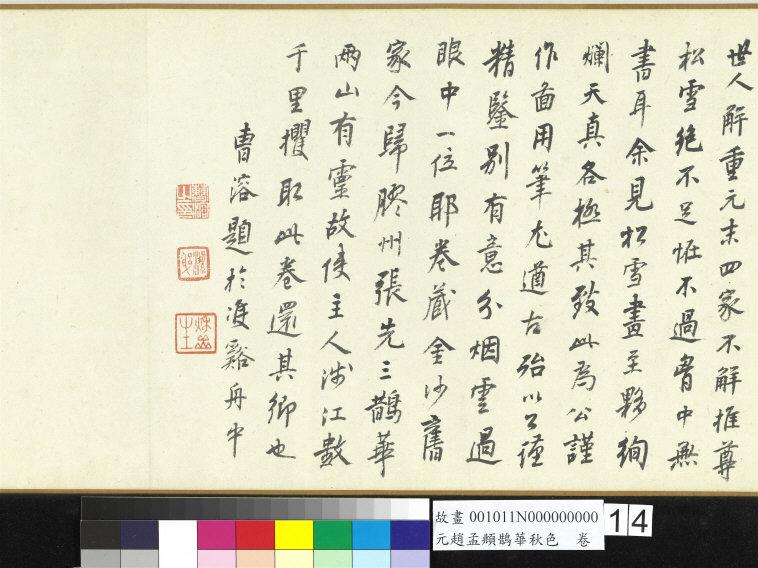 世人解重元末四家不解推尊
松雪絶不足恠不過胷中無
書耳余見松雪畫至夥絢
爛天真各極其致此為公謹
作畵用筆尤遒古殆以公謹
精鑒別有意分烟雲過
眼中一位耶卷蔵金沙舊
家今歸膠州張先三鵲華
兩山有靈故使主人涉江數
千里攫取此卷還其鄉也
曹溶題於渡谿舟中
故畫 001011N000000000
元趙孟頫鵲華秋色 卷
14